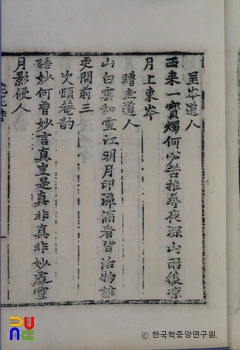 呈岑道人
西来一寶燭何必苦推尋夜深山雨後凉
月上東岑
贈圭道人
山白雲知靈江明月印潭滴看皆活物誰
更問前三
次頤菴韵
語妙何曾妙言真豈是真非真非妙處雪
月影侵人
PUNC
© 한국학중앙연구원.